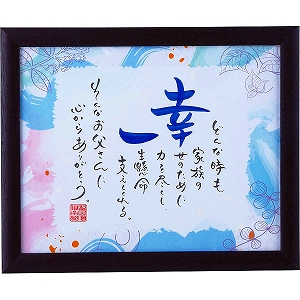 どんな時も
家族の
幸せのために
力を尽くし
一生懸命
支えてくれる。
そんなお父さんに
心からありがとう。